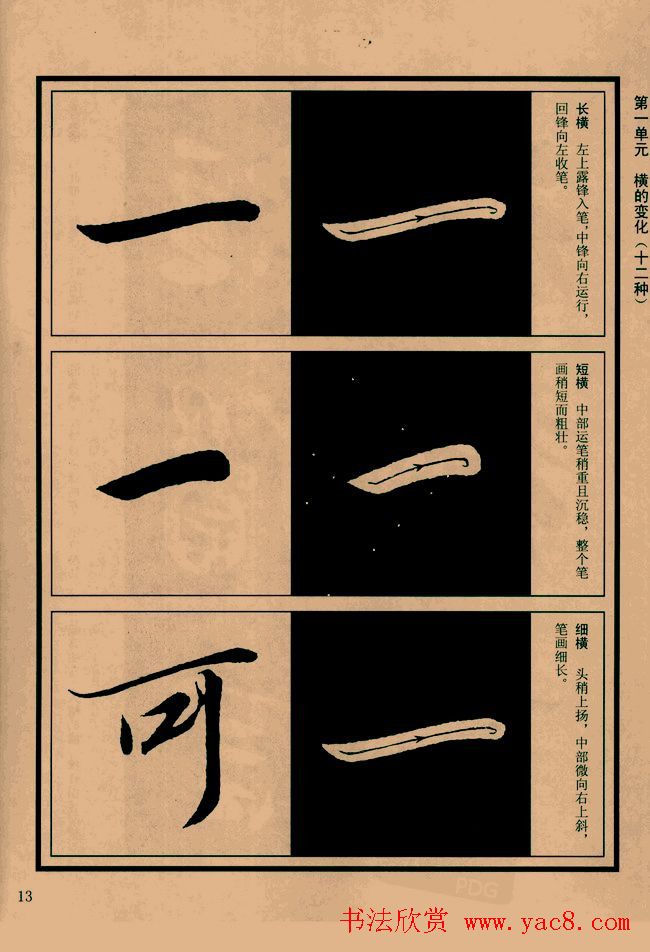 第一单元 横的变化（十二种）
长横 左上露锋入笔，中锋向右运行，
回锋向左收笔。
一
短横 中部运笔稍重且沉稳，整个笔
画稍短而粗壮。
一
细横 头稍上扬，中部微向右上斜，
笔画细长。
可
13
PDG
书法欣赏 www.yac8.com